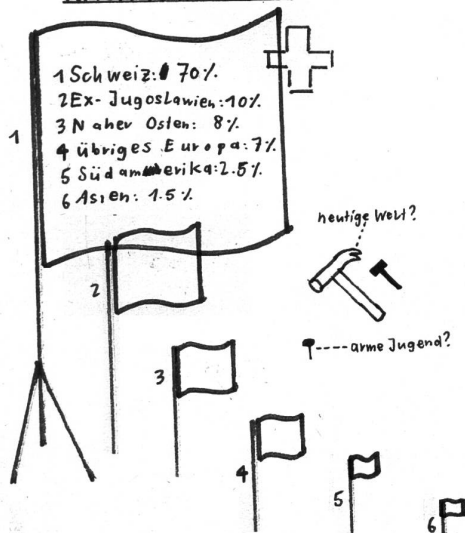 1 Schweiz: 70%
2 Ex-Jugoslawien: 10%
3 Naher Osten: 8%
4 übriges Europa: 7%
5 Südamerika: 2.5%
6 Asien: 1.5%
1
heutige Welt?
2
arme Jugend?
3
4
5
6